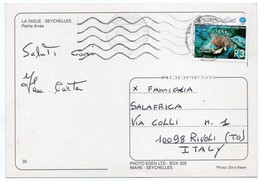 LA DIGUE - SEYCHELLES
Petite Anse
R3
Saluti Cari
ADDRESS
x FAMIGLIA
SALAFRICA
VIA COLLI N. 1
10098 RIVOLI (TO)
ITALY
30
PHOTO EDEN LTD - BOX 328
MAHE - SEYCHELLES
Photo: Gino Esse